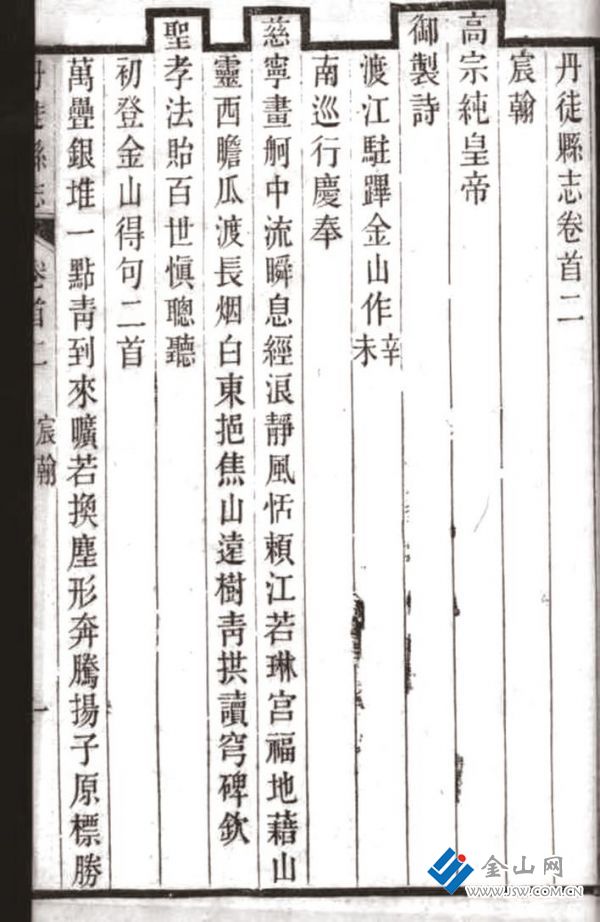 丹徒縣志卷首二
宸翰
高宗純皇帝
御製詩
渡江駐蹕金山作辛未
南巡行慶奉
慈寧畫舸中流瞬息經浪靜風恬賴江若琳宮福地藉山
靈西瞻瓜渡長烟白東挹焦山遠樹青拱讀穹碑欽
聖孝法貽百世愼聰聽
初登金山得句二首
萬疊銀堆一點青到來曠若換塵形奔騰揚子原標勝
丹徒縣志 卷首二 宸翰 一
金山网
WWW.JSW.COM.CN